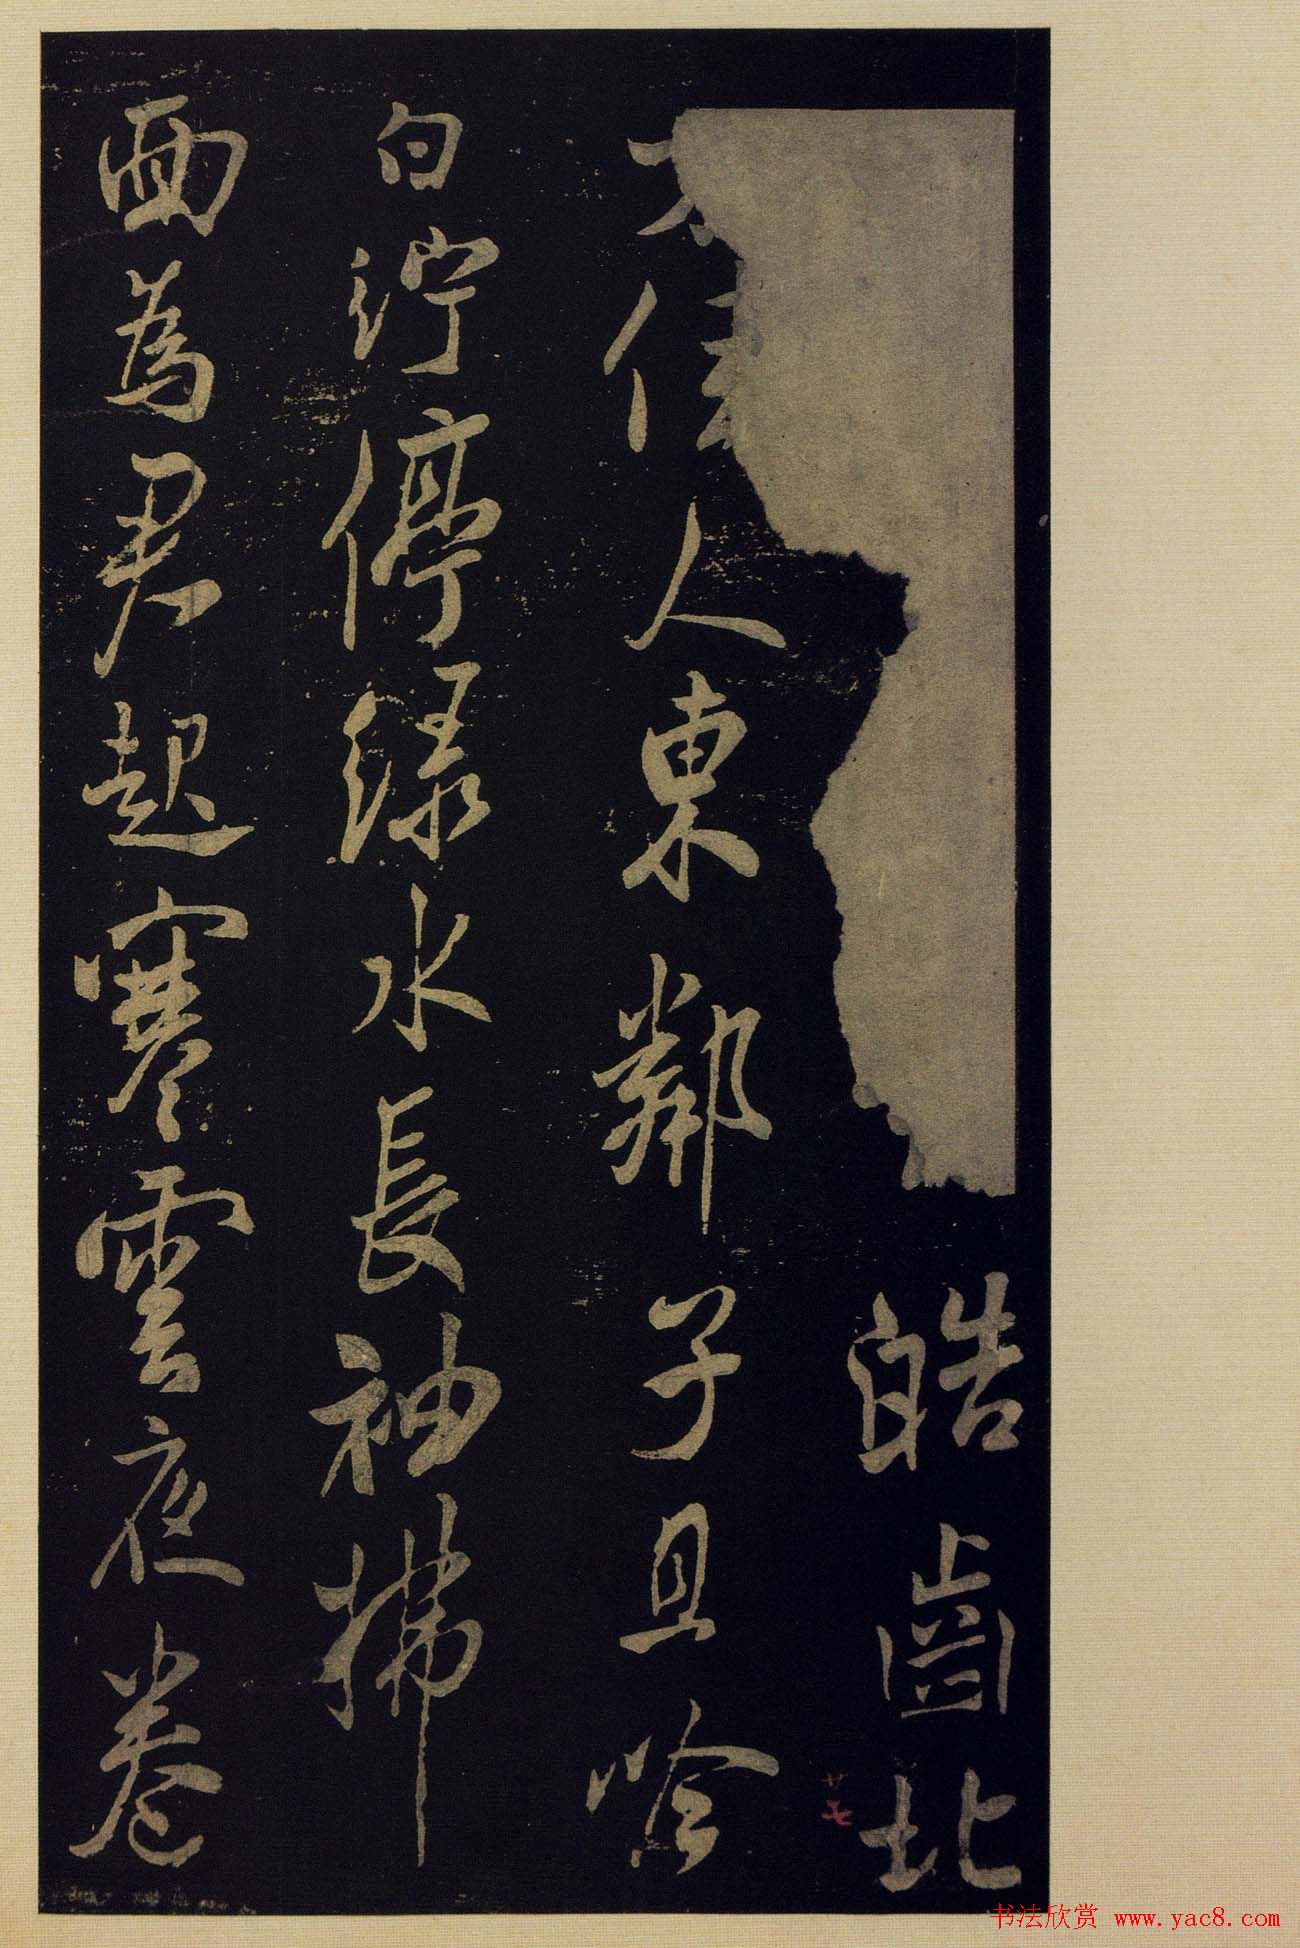 皓齒北
佳人東鄰子且吟
白紵停緑水長袖拂
面為君起寒雲夜卷
书法欣赏 www.yac8.com